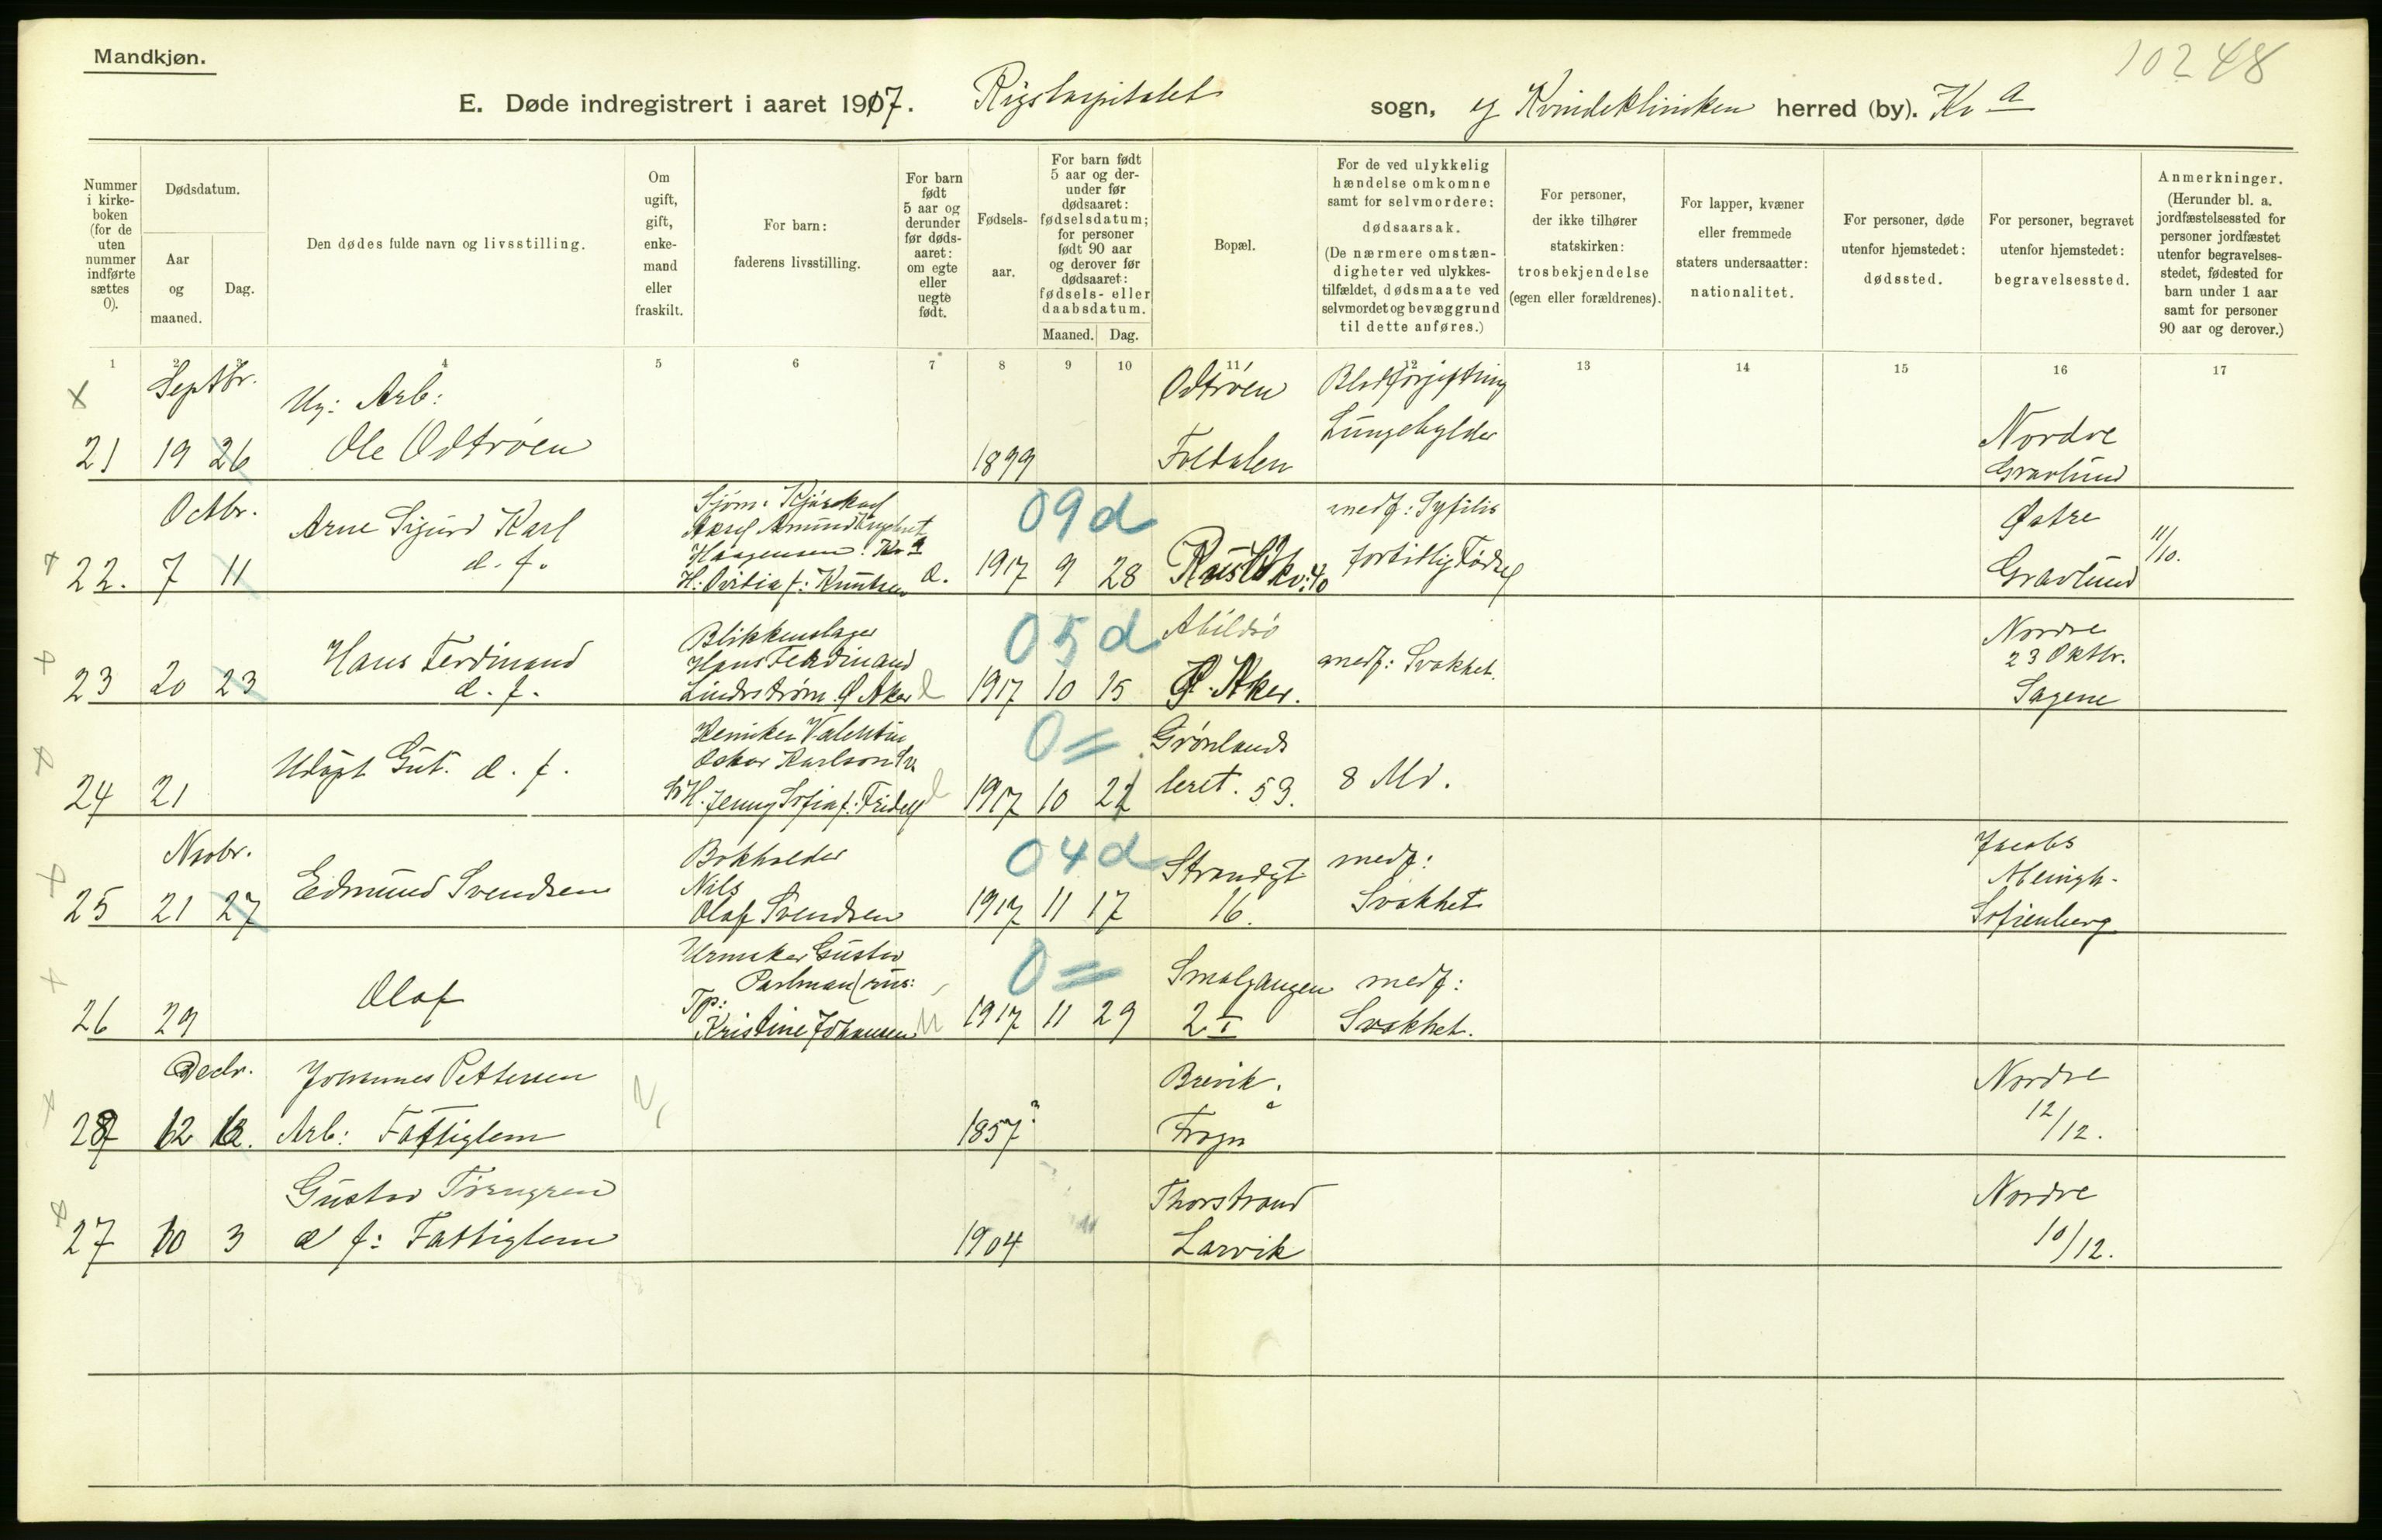 Mandkjøn.
10248
E. Døde indregistrert i aaret 1917. Rigshospitalet sogn, og Kvindekliniken herred (by). Kr a
Nummer i kirkeboken (for de uten nummer indførte sættes 0).
Dødsdatum.
Aar og maaned.
Dag.
Den dødes fulde navn og livsstilling.
Om ugift, gift, enkemand eller fraskilt.
For barn: faderens livsstilling.
For barn født 5 aar og derunder før dødsaaret: om egte eller uegte født.
Fødselsaar.
For barn født 5 aar og derunder før dødsaaret: fødselsdatum; for personer født 90 aar og derover før dødsaaret: fødsels- eller daabsdatum.
Maaned.
Dag.
Bopæl.
For de ved ulykkelig hændelse omkomne samt for selvmordere: dødsaarsak. (De nærmere omstændigheter ved ulykkestilfældet, dødsmaate ved selvmordet og bevæggrund til dette anføres.)
For personer, der ikke tilhører statskirken: trosbekjendelse (egen eller forældrenes).
For lapper, kvæner eller fremmede staters undersaatter: nationalitet.
For personer, døde utenfor hjemstedet: dødssted.
For personer, begravet utenfor hjemstedet: begravelsessted.
Anmerkninger. (Herunder bl. a. jordfæstelsessted for personer jordfæstet utenfor begravelsesstedet, fødested for barn under 1 aar samt for personer 90 aar og derover.)
1 2 3 4 5 6 7 8 9 10 11 12 13 14 15 16 17
Septbr. Ug: Arb: Odtrøen Blodforgiftning
Lungebylder Nordre
21 19 26 Ole Odtrøen 1899 Foldalen Gravlund
Octbr. Arne Sigurd Karl 09d medf: Syfilis Østre
d. f. 11/10.
22. 7 11 H. Ovidia f: Knutsen e. 1917 9 28 40 fortidlig Fødsel Gravlund
Blikkenslager 05d Abildsø Nordre
Hans Ferdinand Hans Ferdinand medf: Svakhet. 23 Oktbr.
23 20 23 d. f. Lindstrøm Ø Aker 1917 10 15 Ø. Aker. Sagene
Valentin 0= Grønlands
Udøpt Gut. d. f. Oskar Karlson
24 21 Jenny Sofia f: 1917 10 21 leret. 59. 8 Md.
Novbr. Bokholder 04d Strandgt. medf: Jacobs
Edmund Svendsen Nils Menigh.
25 21 27 Olaf Svendsen 1917 11 17 16. Svakhet Sofienberg
Urmaker Gustav 0= Smalgangen medf:
Olaf Parlman (rus:
Tp:
26 29 Kristine Johansen u 1917 11 29 2 I Svakhet.
Decbr. Johannes Pettersen Brevik. Nordre
28 12 12. Arb: Fattiglem 1857? Frogn 12/12.
Gustav Törngren Thorstrand Nordre
27 10 3 d f: Fattiglem 1904 Larvik 10/12.